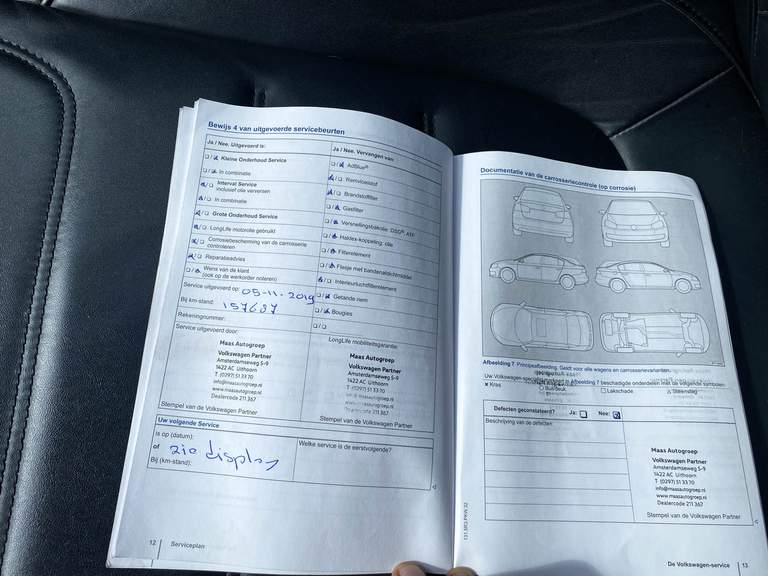 Bewijs 4 van uitgevoerde servicebeurten
Ja / Nee. Uitgevoerd is:
Kleine Onderhoud Service
In combinatie
Interval Service
inclusief olie verversen
In combinatie
Grote Onderhoud Service
LongLife motorolie gebruikt
Corrosiebescherming van de carrosserie
controleren
Reparatieadvies
Wens van de klant
(ook op de werkorder noteren)
Service uitgevoerd op: 05-11-2019
Bij km-stand: 157687
Rekeningnummer:
Service uitgevoerd door:
Maas Autogroep
Volkswagen Partner
Amsterdamseweg 5-9
1422 AC Uithoorn
T (0297) 51 33 70
info@maasautogroep.nl
www.maasautogroep.nl
Dealercode 211 367
Stempel van de Volkswagen Partner
Ja / Nee. Vervangen van:
AdBlue®
Remvloeistof
Brandstoffilter
Gasfilter
Versnellingsbakolie: DSG®, ATF
Haldex-koppeling: olie
Filterelement
Flesje met bandenafdichtmiddel
Interieurluchtfilterelement
Getande riem
Bougies
LongLife mobiliteitsgarantie:
Maas Autogroep
Volkswagen Partner
Amsterdamseweg 5-9
1422 AC Uithoorn
T (0297) 51 33 70
Stempel van de Volkswagen Partner
Uw volgende Service
is op (datum):
of zie display
Bij (km-stand):
Welke service is de eerstvolgende?
12 Serviceplan
Documentatie van de carrosseriecontrole (op corrosie)
Afbeelding 7 Principeafbeelding. Geldt voor alle wagens en carrosserievarianten.
Uw Volkswagen-specialist
in Afbeelding 7 beschadigde onderdelen met de volgende symbolen:
x Kras
Lakschade
Steenslag
Defecten geconstateerd? Ja: Nee:
Beschrijving van de defecten:
Maas Autogroep
Volkswagen Partner
Amsterdamseweg 5-9
1422 AC Uithoorn
T (0297) 51 33 70
info@maasautogroep.nl
www.maasautogroep.nl
Dealercode 211 367
Stempel van de Volkswagen Partner
De Volkswagen-service 13